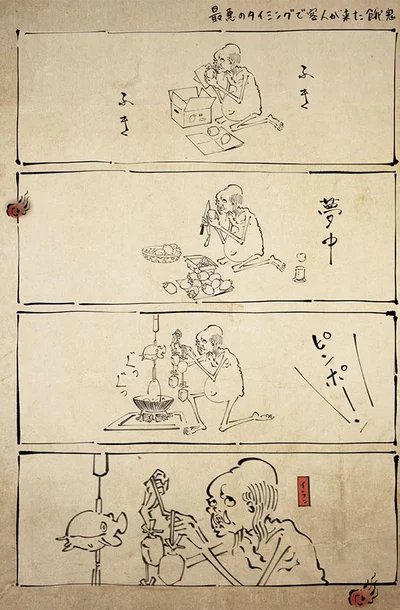 最悪のタイミングで客人が来た餓鬼
ふき
ふき
夢中
ピンポーン
ぐつ
ぐつ
イラッ